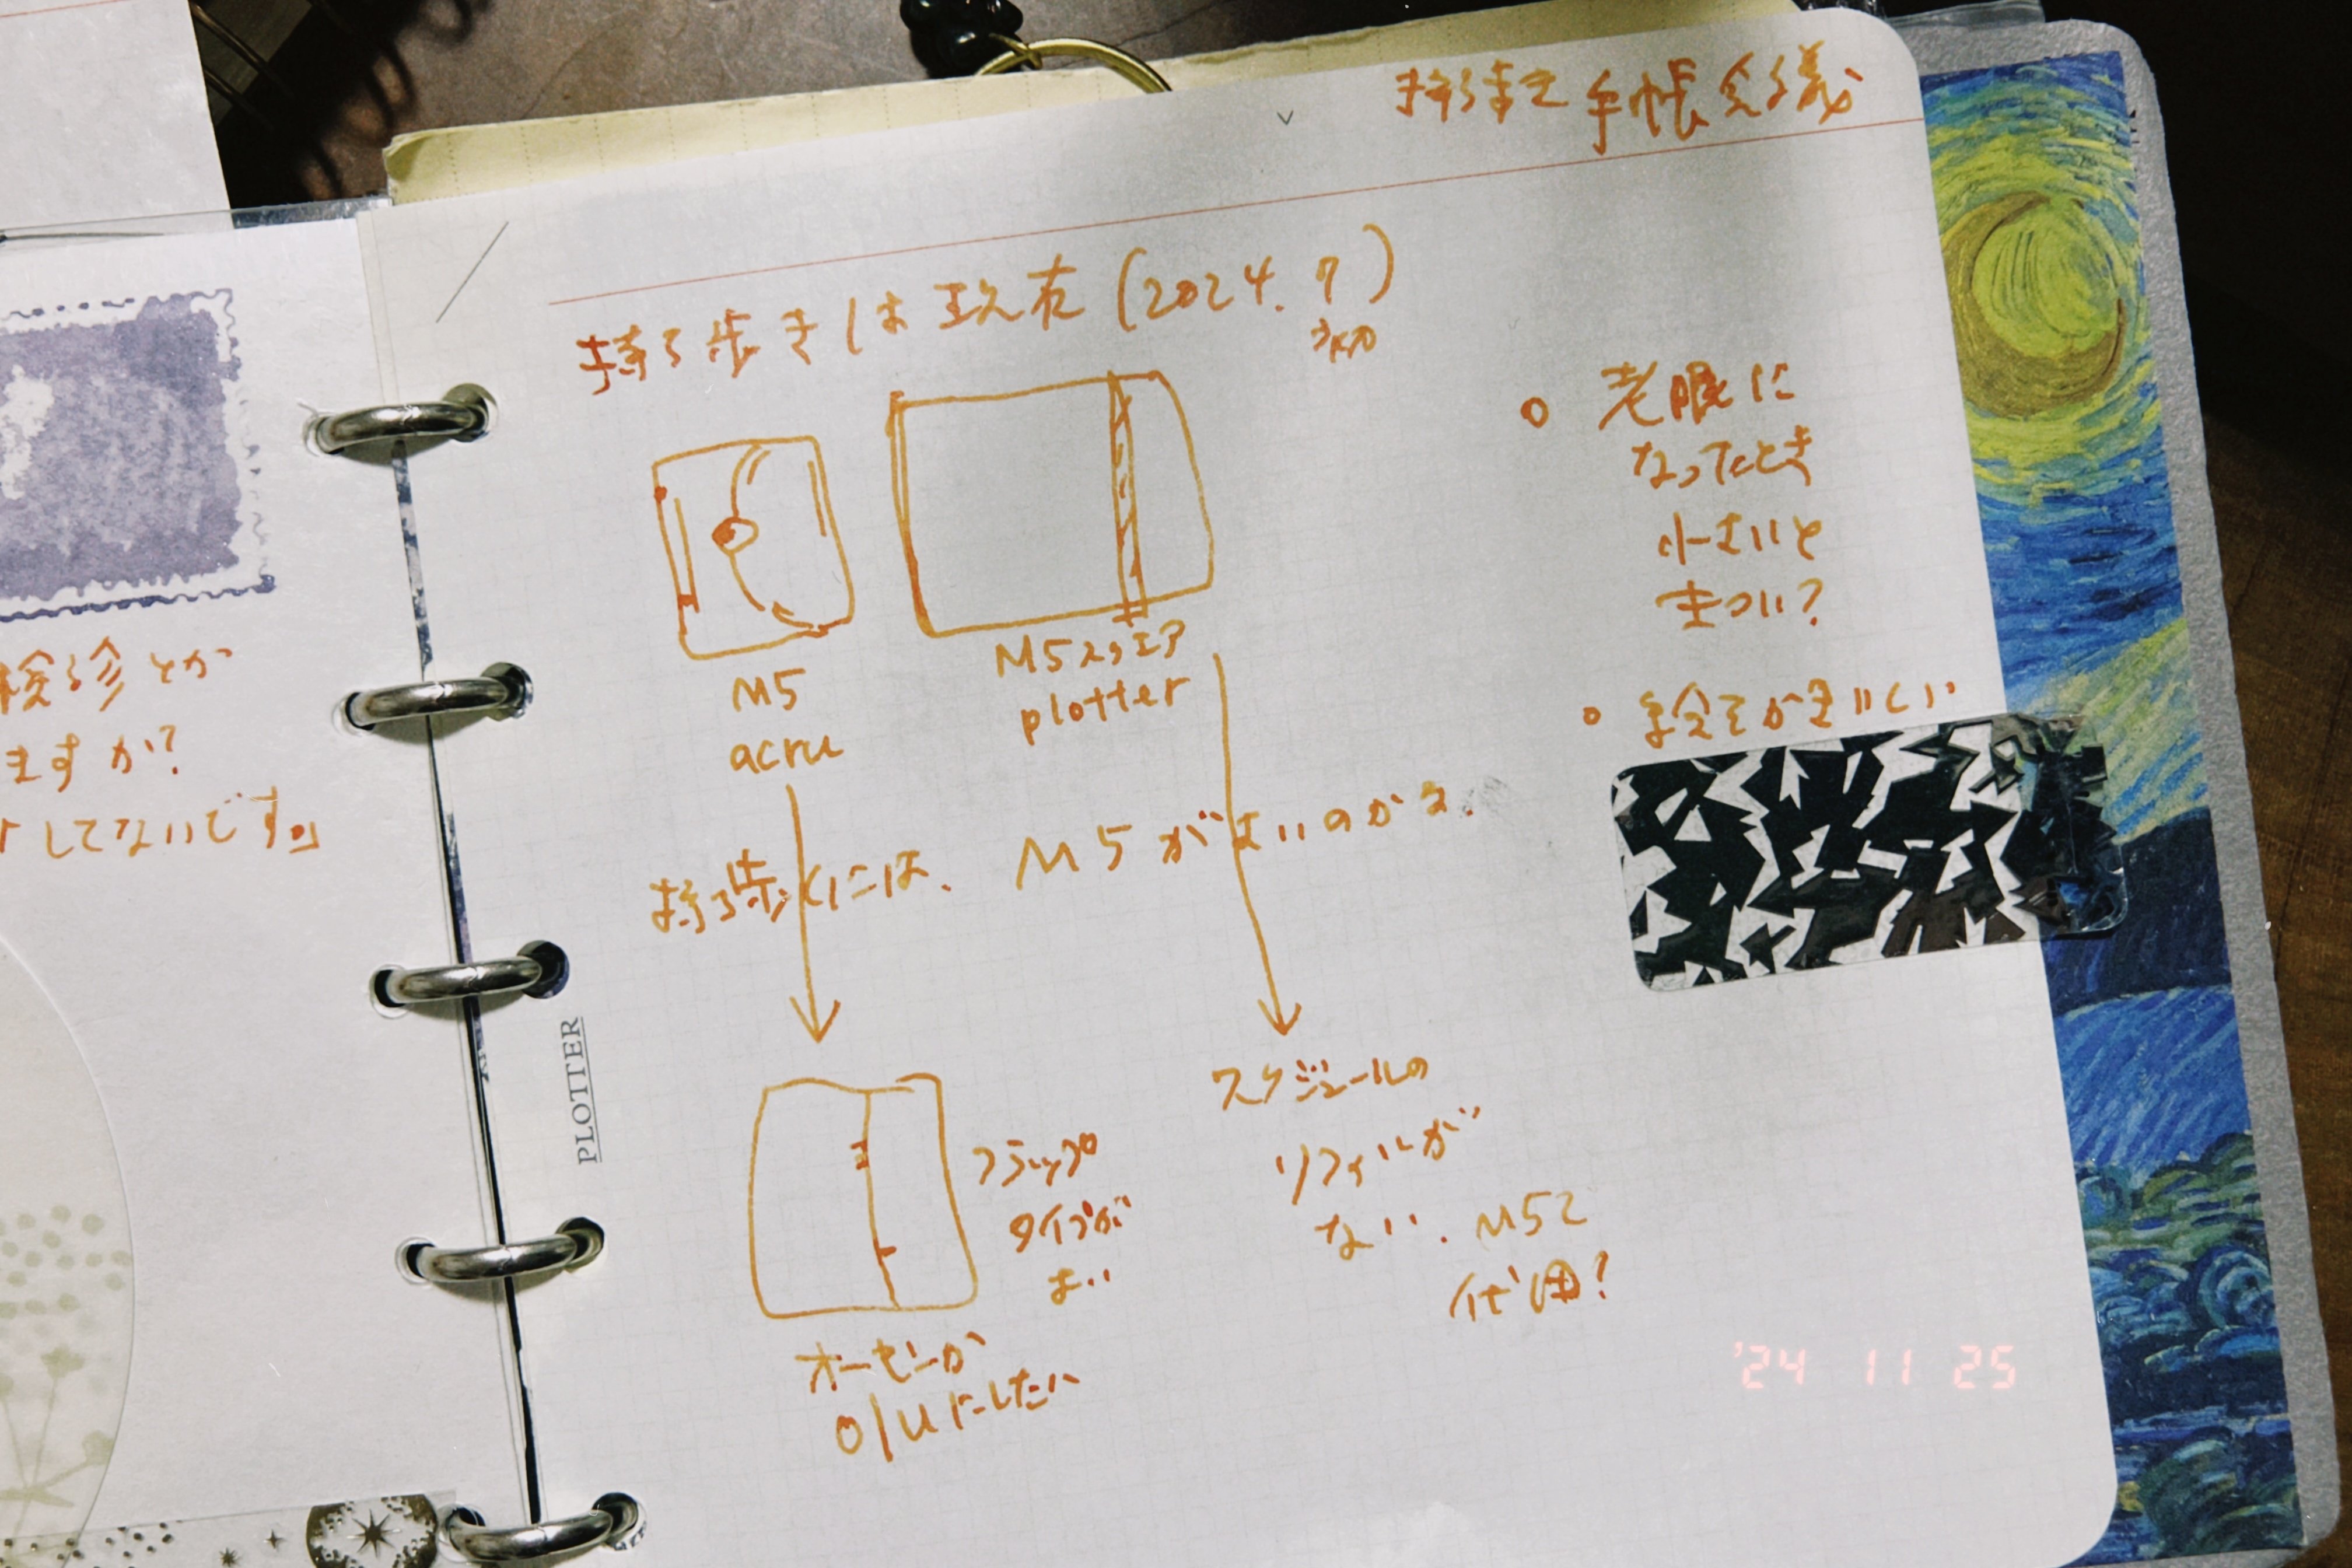 持ち歩き手帳会議
持ち歩きは現在(2024.7)
M5
acru
M5スクエア
plotter
老眼に
なったとき
小さいと
きつい?
絵もかきにくい
持ち歩くには、M5がよいのかな.
フラップ
タイプが
よい
スケジュールの
リフィルが
ない. M5で
代用?
オーセンか
にしたい
PLOTTER
検診とか
ますか?
してないです。」
'24 11 25